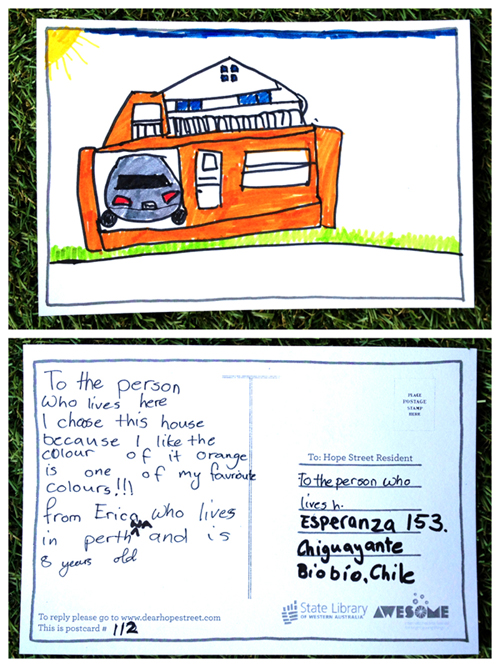 To the person
who lives here
I chose this house
because I like the
colour of it orange
is one of my favroute
colours!!!
from Erica who lives
in perth WA and is
8 years old
To reply please go to www.dearhopestreet.com
This is postcard # 112
PLACE
POSTAGE
STAMP
HERE
To: Hope Street Resident
To the person who
lives h.
Esperanza 153.
Chiguayante
Bio bío, Chile
State Library
OF WESTERN AUSTRALIA
AWESOME